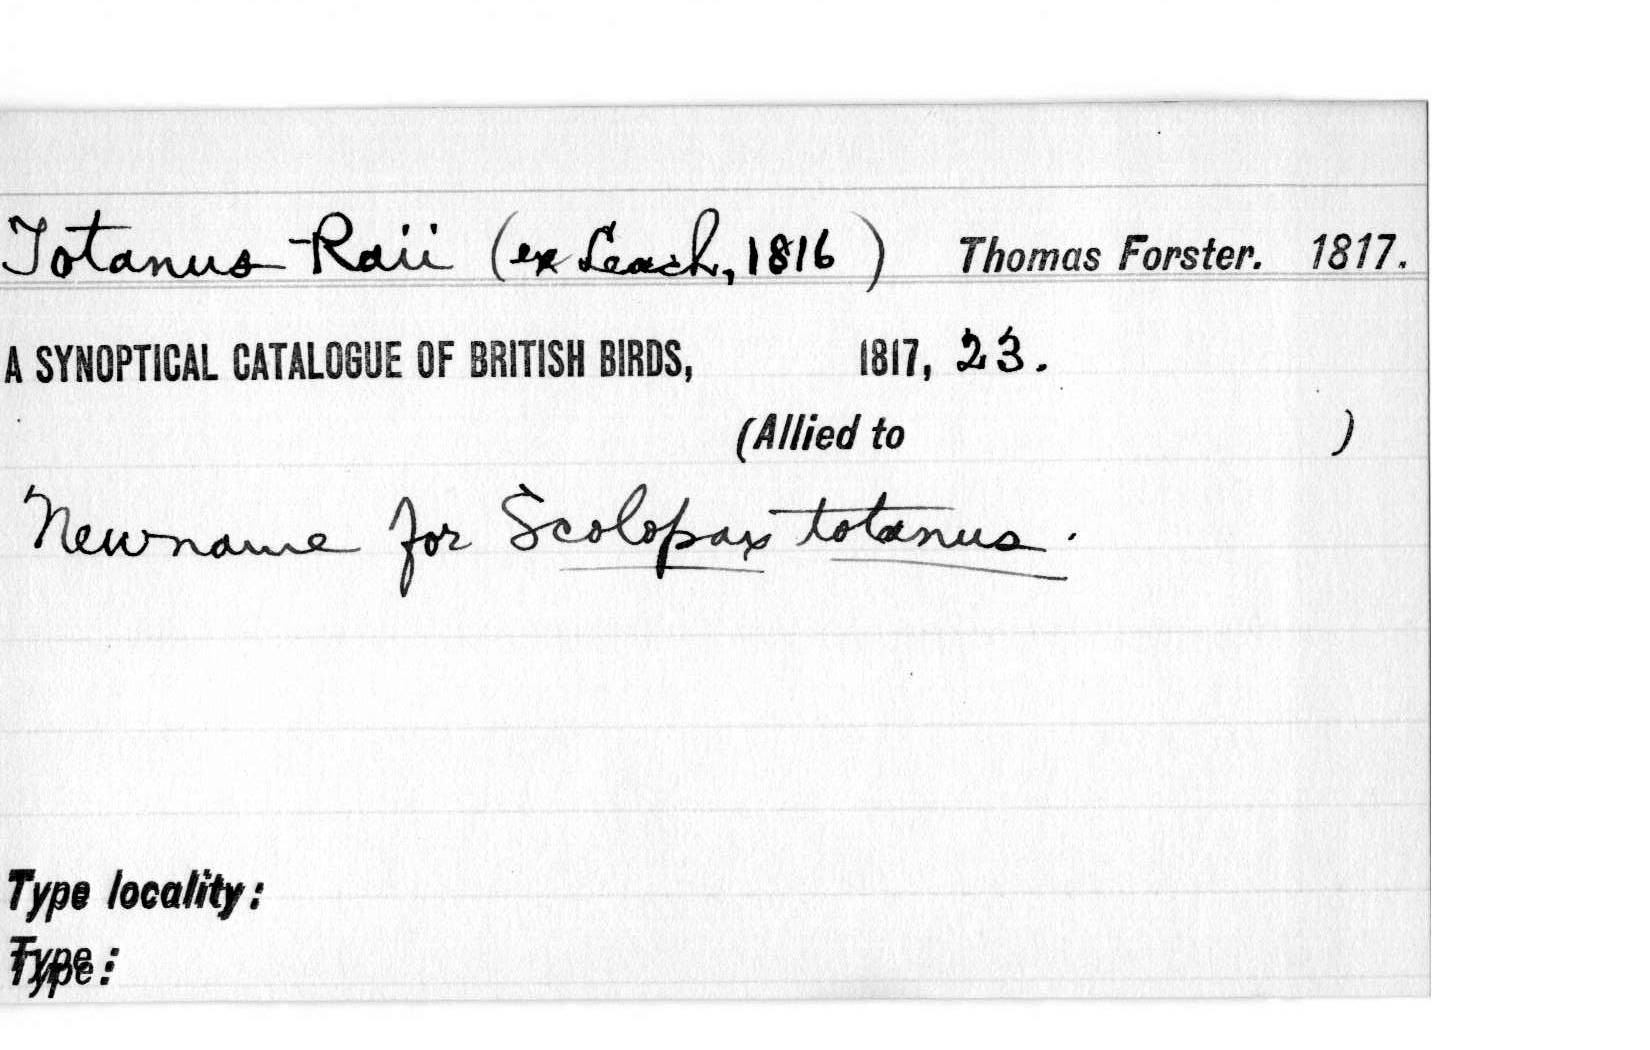 Totanus Raii (ex Leach, 1816) Thomas Forster. 1817.
A SYNOPTICAL CATALOGUE OF BRITISH BIRDS, 1817, 23.
(Allied to )
New name for Scolopax totanus.
Type locality:
Type: